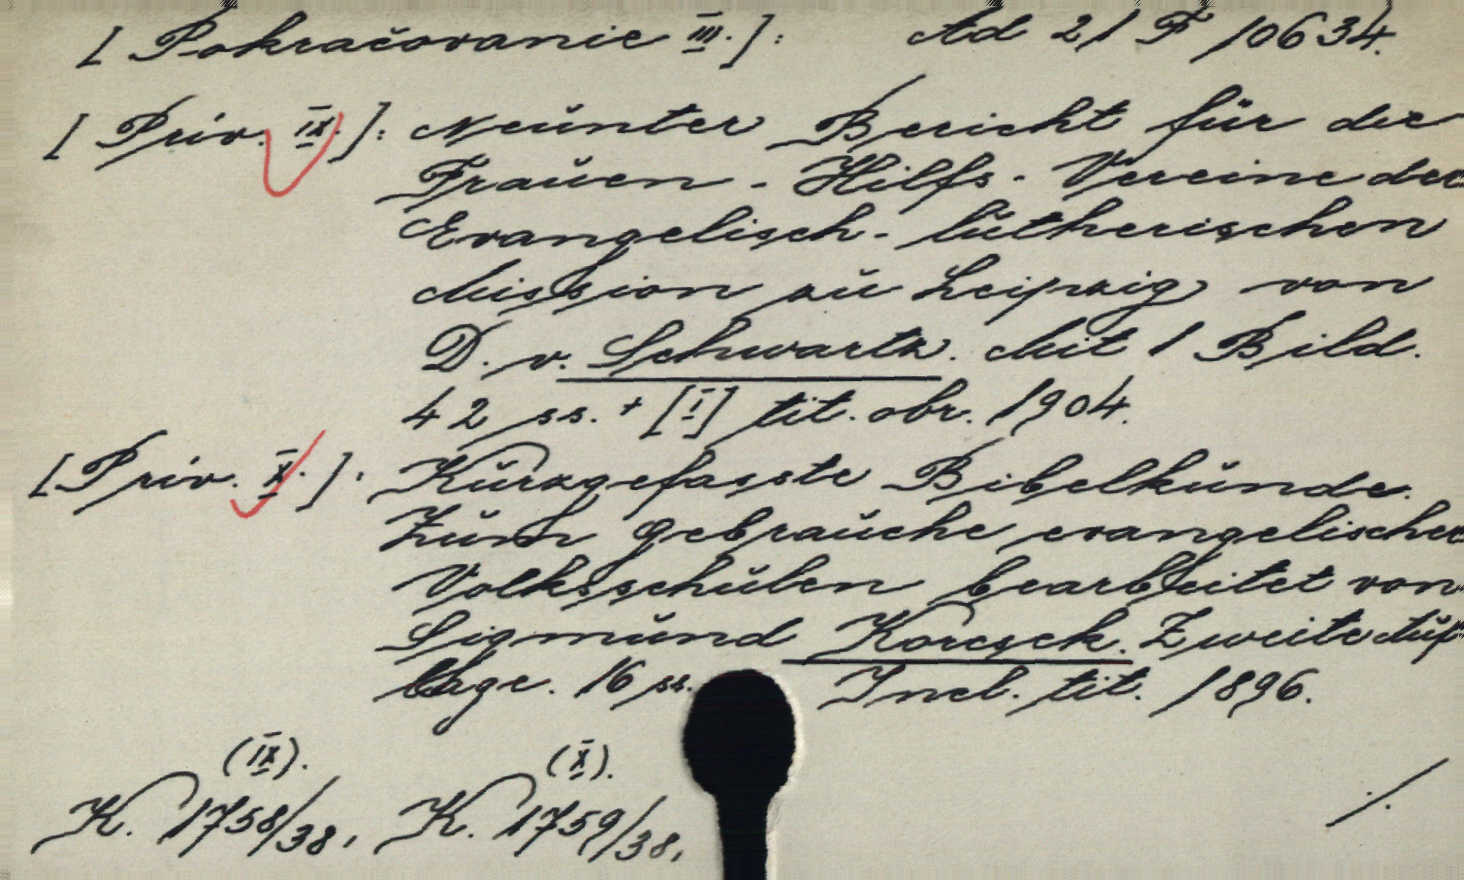 [Pokračovanie III.]: Ad 21 F 10634.
[Priv. IX.]: Neŭnter Bericht für die
Fraŭen - Hilfs - Vereine der
Evangelisch - lŭtherischen
Mission zŭ Leipzig von
D. v. Schwartz. Mit 1 Bild.
42 ss. + [I] tit. obr. 1904.
[Priv. X.]: Kŭrzgefasste Bibelkŭnde.
Zŭm Gebraŭche evangelischer
Volksschŭlen bearbeitet von
Sigmŭnd Korcsek. Zweite Aŭf-
lage. 16 ss. Incl. tit. 1896.
(IX). (X).
K. 1758/38, K. 1759/38,
./.